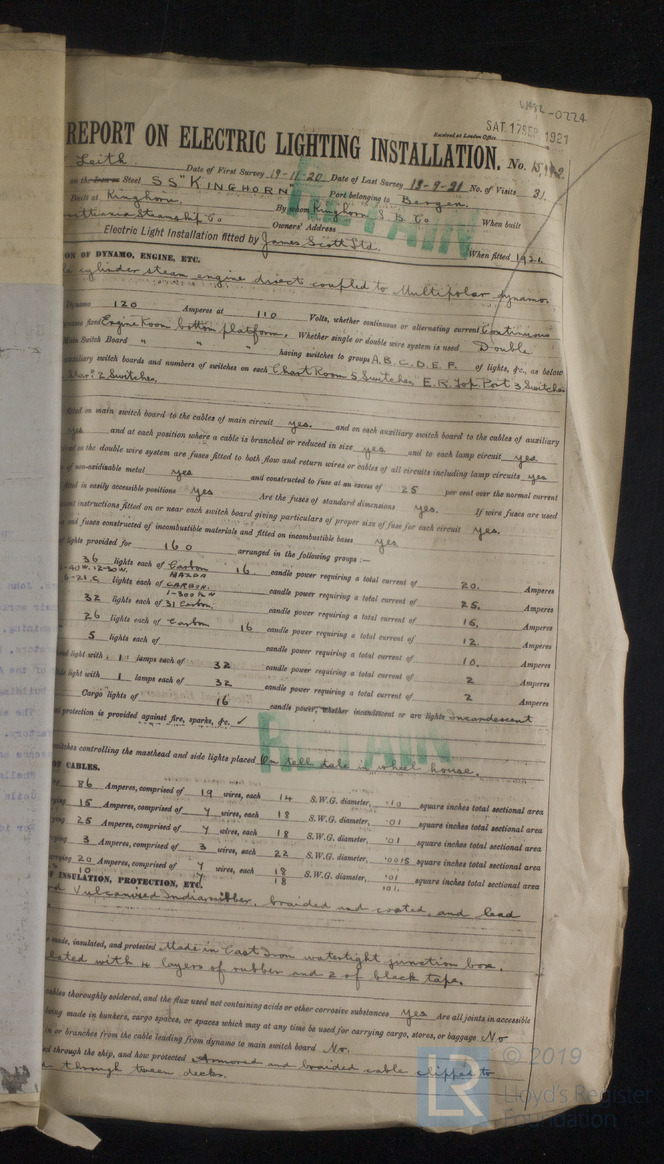 W492-0224
Received at London Office
SAT. 17 SEP 1921
REPORT ON ELECTRIC LIGHTING INSTALLATION. No.
Leith. Date of First Survey 19-11-20 Date of Last Survey 13-9-21 No. of Visits 31.
on the Iron or Steel SS "KINGHORN" Port belonging to Bergen.
Built at Kinghorn. By whom Kinghorn S. B. Co When built
Steamship Co Owners' Address
Electric Light Installation fitted by James Scott Ltd. When fitted 1921.
ON OF DYNAMO, ENGINE, ETC.
cylinder steam engine direct coupled to Multipolar dynamo.
Dynamo 120 Amperes at 110 Volts, whether continuous or alternating current Continuous
fixed Engine Room bottom platform. Whether single or double wire system is used Double
Main Switch Board " " " having switches to groups A, B, C, D, E, F. of lights, &c., as below
auxiliary switch boards and numbers of switches on each Chart Room 5 Switches, E. R. Top Port 3 Switches
Star: 2 Switches,
fitted on main switch board to the cables of main circuit yes. and on each auxiliary switch board to the cables of auxiliary
yes and at each position where a cable is branched or reduced in size yes and to each lamp circuit yes
on the double wire system are fuses fitted to both flow and return wires or cables of all circuits including lamp circuits yes
of non-oxidisable metal yes and constructed to fuse at an excess of 25 per cent over the normal current
fitted in easily accessible positions yes Are the fuses of standard dimensions yes. If wire fuses are used
instructions fitted on or near each switch board giving particulars of proper size of fuse for each circuit yes.
and fuses constructed of incombustible materials and fitted on incombustible bases yes
lights provided for 160 arranged in the following groups :—
36 lights each of Carbon 16 candle power requiring a total current of 20. Amperes
40 W. 12-30 W. MAZDA
6-21. C lights each of CARBON. candle power requiring a total current of 25. Amperes
1-300 W
32 lights each of 31 Carbon. candle power requiring a total current of 15, Amperes
26 lights each of Carbon 16 candle power requiring a total current of 12. Amperes
5 lights each of candle power requiring a total current of 10. Amperes
light with 1 lamps each of 32 candle power requiring a total current of 2 Amperes
light with 1 lamps each of 32 candle power requiring a total current of 2 Amperes
Cargo lights of 16 candle power, whether incandescent or arc lights Incandescent
protection is provided against fire, sparks, &c. ✓
RETAIN
switches controlling the masthead and side lights placed On tell tale in wheel house.
OF CABLES.
86 Amperes, comprised of 19 wires, each 14 S.W.G. diameter, ·10 square inches total sectional area
15 Amperes, comprised of 7 wires, each 18 S.W.G. diameter, ·01 square inches total sectional area
25 Amperes, comprised of 7 wires, each 18 S.W.G. diameter, ·01 square inches total sectional area
3 Amperes, comprised of 3 wires, each 22 S.W.G. diameter, ·0015 square inches total sectional area
20 Amperes, comprised of 7 wires, each 18 S.W.G. diameter, ·01 square inches total sectional area
10 7 18 ·01
OF INSULATION, PROTECTION, ETC.
Vulcanised Indiarubber, braided and coated, and lead
made, insulated, and protected Made in Cast Iron watertight junction box.
with 4 layers of rubber and 2 of black tape.
cables thoroughly soldered, and the flux used not containing acids or other corrosive substances yes Are all joints in accessible
being made in bunkers, cargo spaces, or spaces which may at any time be used for carrying cargo, stores, or baggage No
in or branches from the cable leading from dynamo to main switch board No.
through the ship, and how protected Armored and braided cable clipped to
through tween decks.
LR © 2019
Lloyd's Register
Foundation